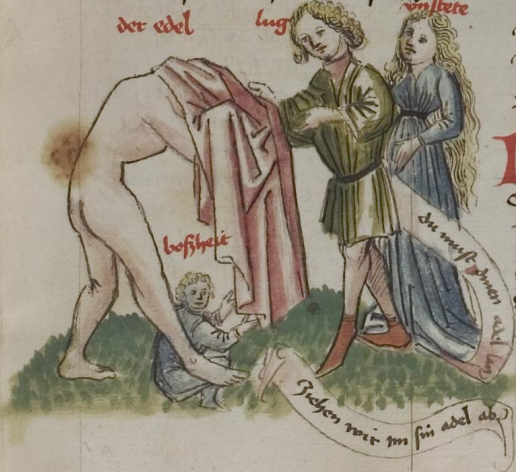 der edel
lug
vnstete
boſzheit
du muſt dinen adel lan
Ziehen wir im ſin adel ab